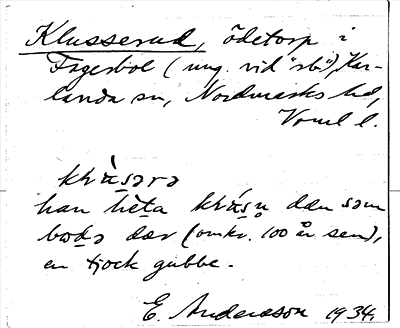 Klusserud, ödetorp i
Fagerbol (ung. vid "rbö"), Kar-
landa sn, Nordmarks hd,
Vrml l.
klùsərə
han hèta klúsn dän som
bodə där (omkr. 100 år sen),
en tjock gubbe.
E. Andersson 1934.